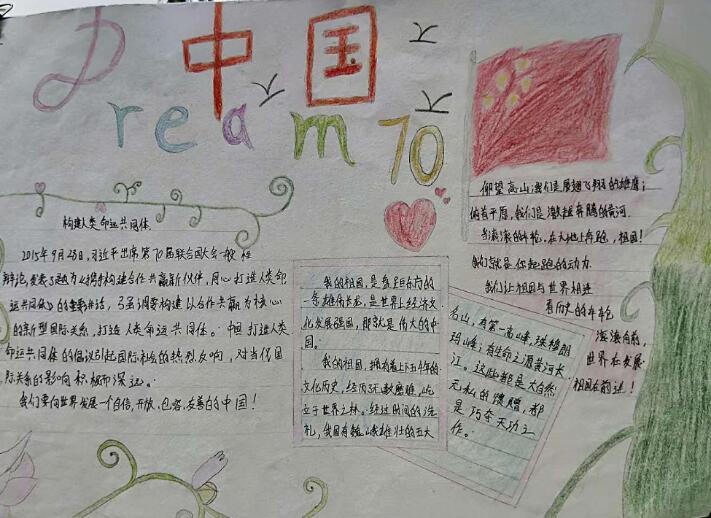 中国
Dream
70
构建人类命运共同体
2015年9月28日,习近平出席第70届联合国大会一般性
辩论,发表了题为《携手构建合作共赢新伙伴,同心打造人类命
运共同体》的重要讲话,强调要构建以合作共赢为核心
的新型国际关系,打造人类命运共同体。中国打造人类
命运共同体的倡议引起国际社会的热烈反响,对当代国
际关系的影响积极而深远。
我们要向世界发展一个自信,开放,包容,友善的中国!
我的祖国,是
一条雄伟长龙,是世界上经济文
化发展强国,那就是伟大的中
国。
我的祖国,拥有着上下五千年的
文化历史,经历无数磨难,屹
立于世界之林。经过时间的洗
礼,我国有巍峨雄壮的五大
名山,有第一高峰,珠穆朗
玛峰;有生命之源黄河长
江。这些都是大自然
无私的馈赠,都
是巧夺天功之
作。
仰望高山我们是展翅飞翔的雄鹰;
俯看平原,我们是激越奔腾的黄河.
滚滚的车轮,在大地上奔跑,祖国!
我们就是你起跑的动力.
我们让祖国与世界相连
看历史的车轮
滚滚向前,
世界在发展
祖国在前进!